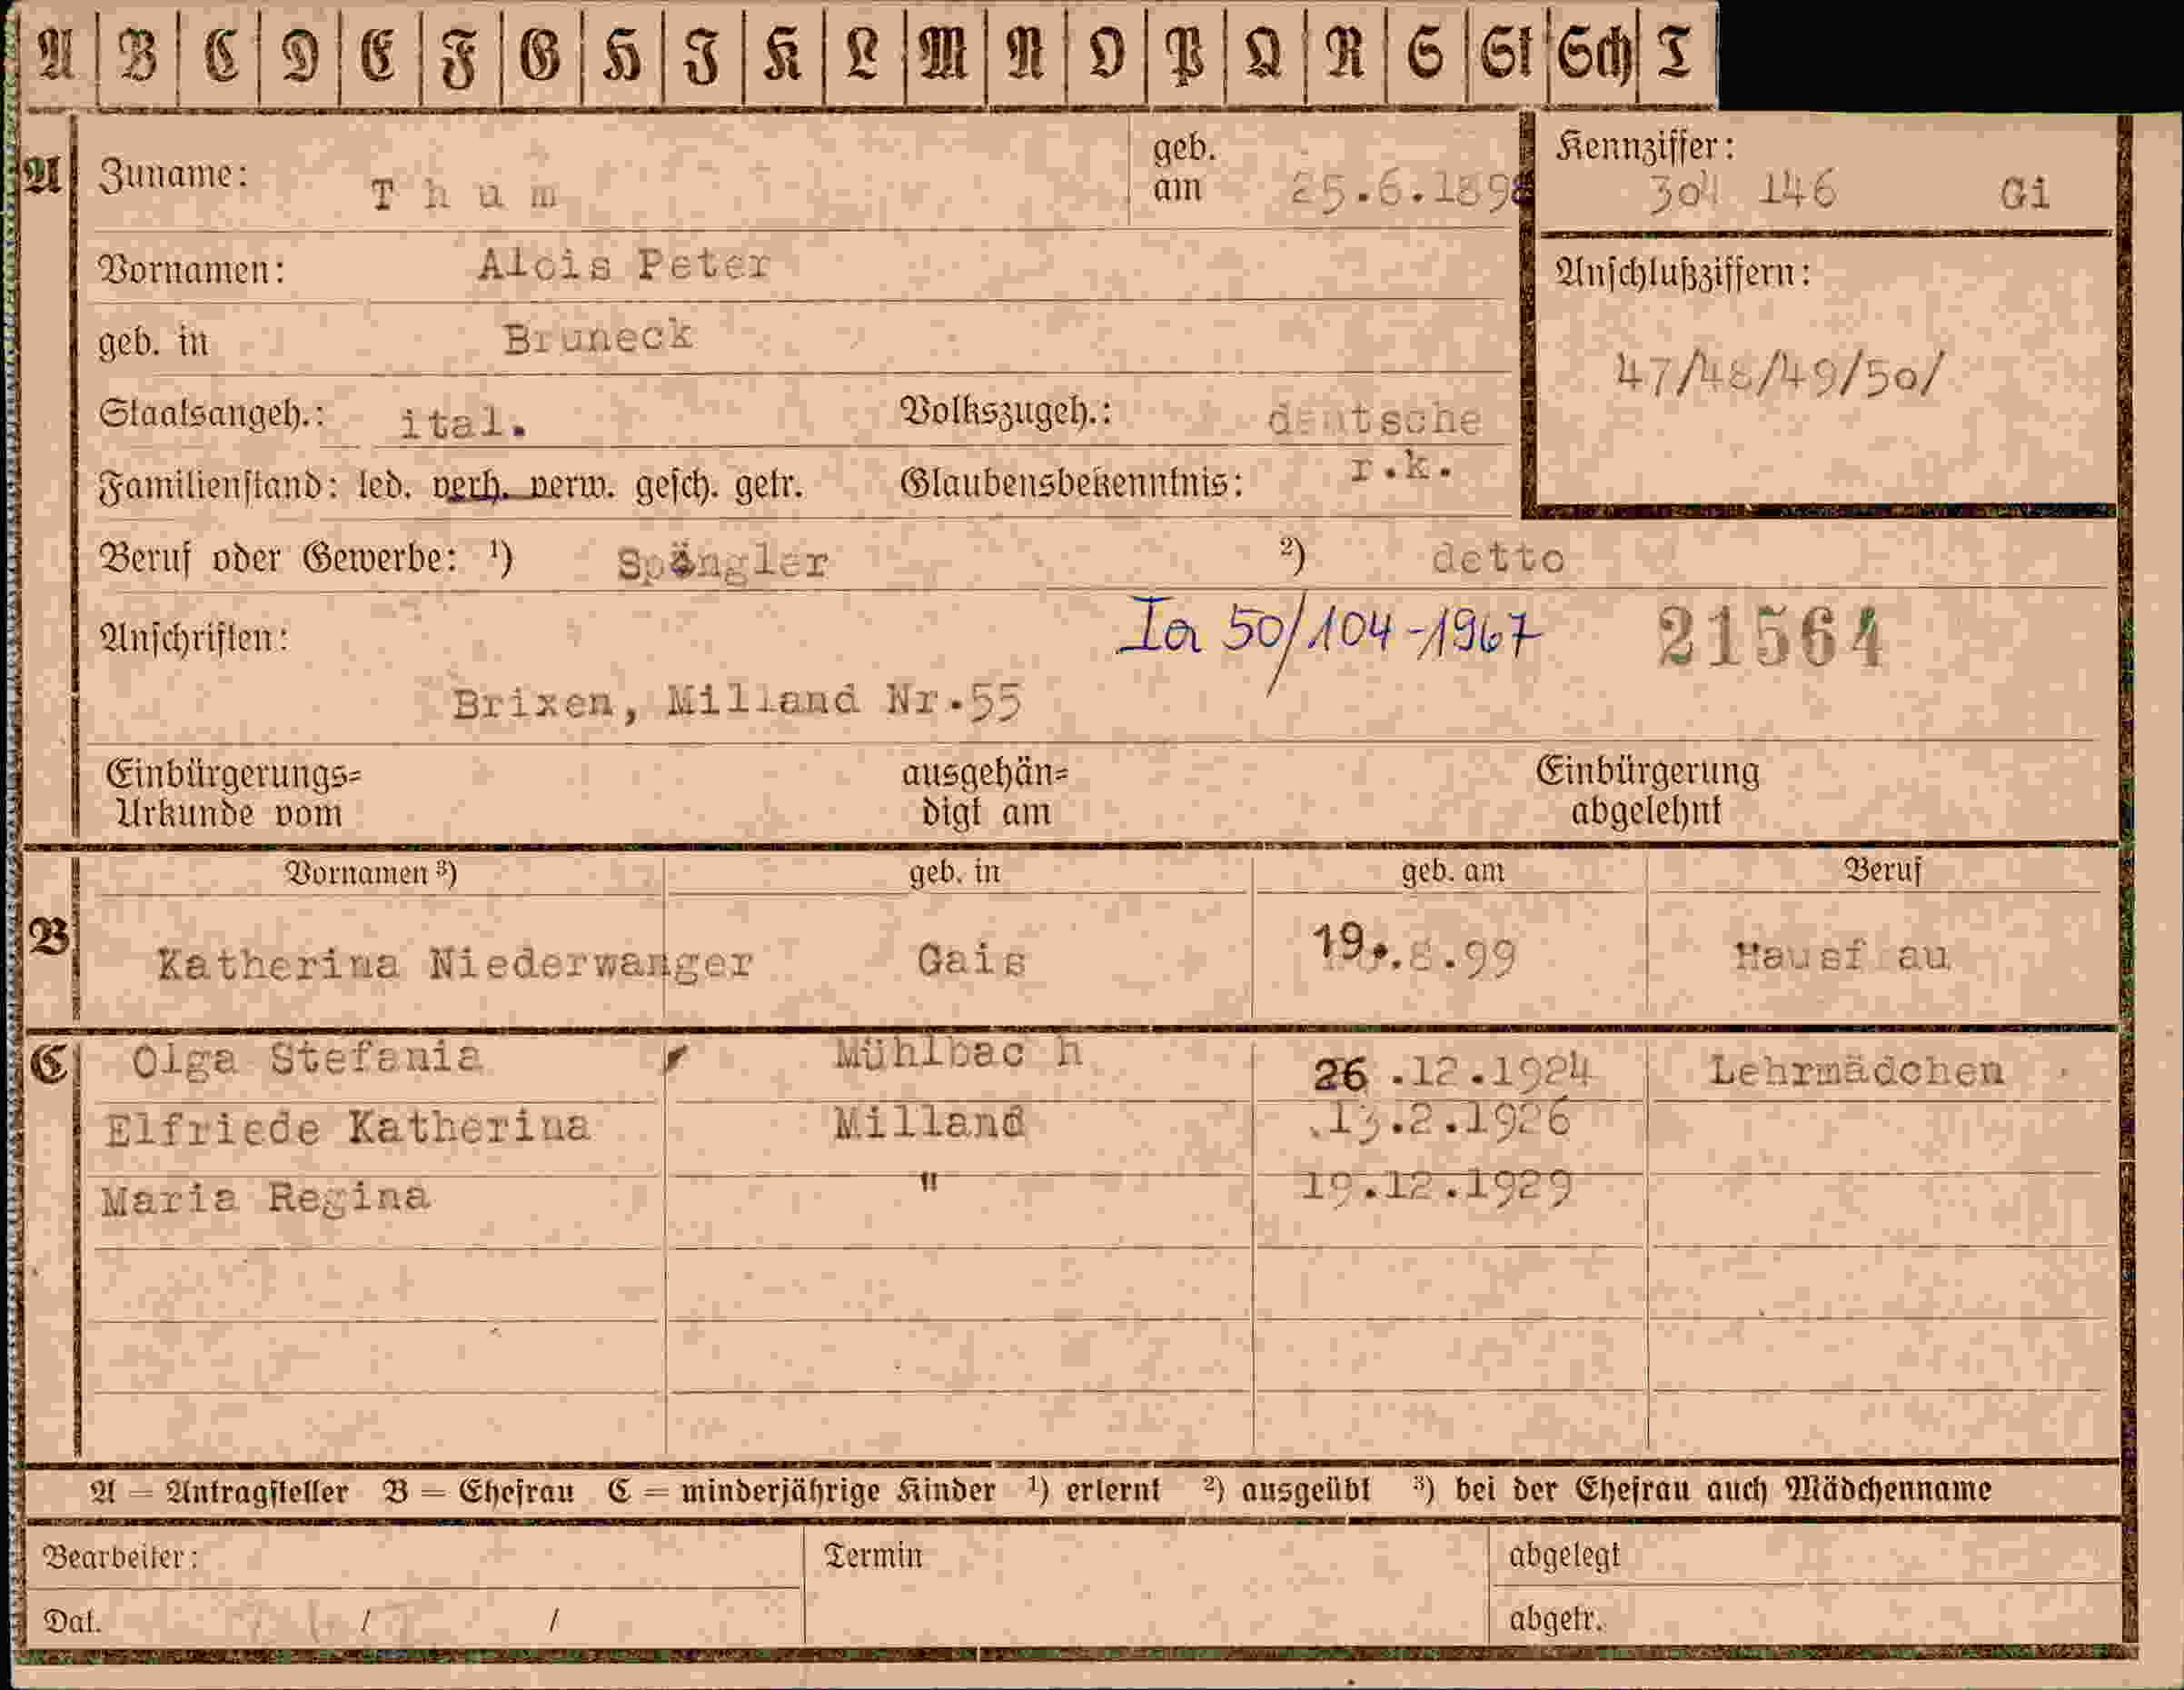 A B C D E F G H I K L M N O P Q R S St Sch T
A Zuname: T h u m geb. am 25.6.1898 Kennziffer: 304 146 Gi
Vornamen: Alois Peter
Anschlußziffern:
geb. in Bruneck
47/48/49/50/
Staatsangeh.: ital. Volkszugeh.: deutsche
Familienstand: led. verh. verw. gesch. getr. Glaubensbekenntnis: r.k.
Beruf oder Gewerbe: ¹) Spängler ²) detto
Anschriften: Ia 50/104-1967 21564
Brixen, Milland Nr.55
Einbürgerungs= ausgehän= Einbürgerung
Urkunde vom digt am abgelehnt
Vornamen ³) geb. in geb. am Beruf
B Katherina Niederwanger Gais 19..8.99 Hausf au
C Olga Stefania Mühlbac h 26 .12.1924 Lehrmädchen
Elfriede Katherina Milland .13.2.1926
Maria Regina " 19.12.1929
A = Antragsteller B = Ehefrau C = minderjährige Kinder ¹) erlernt ²) ausgeübt ³) bei der Ehefrau auch Mädchenname
Bearbeiter: Termin abgelegt
Dat. / / abgetr.